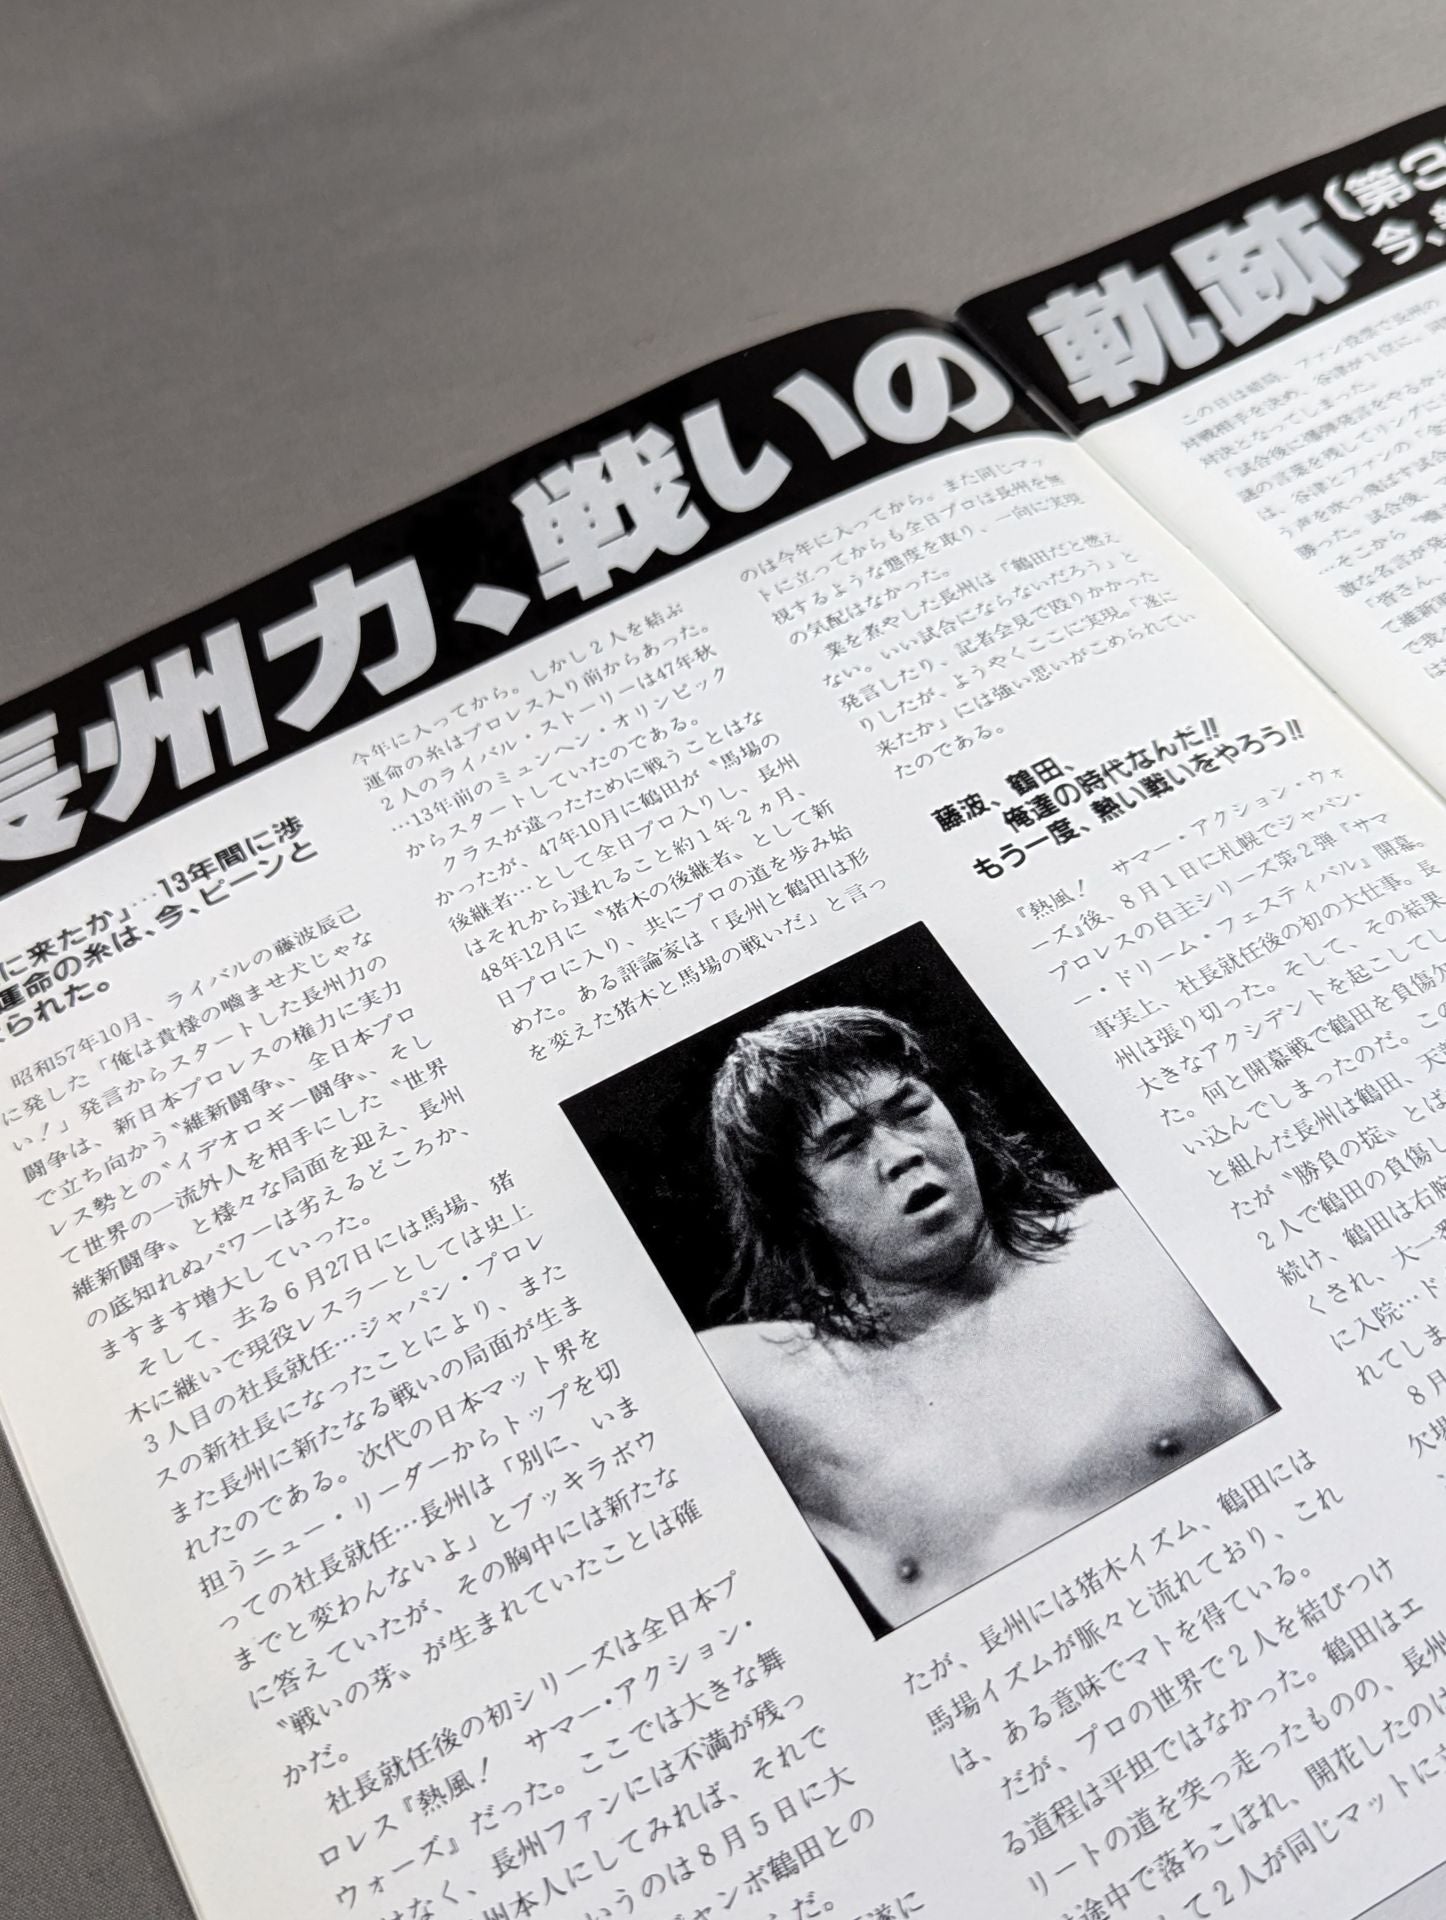 長州力、戦いの軌跡
(第3
今、
に来たか」…13年間に渉
運命の糸は、今、ピーンと
られた。
昭和57年10月、ライバルの藤波辰己
に発した「俺は貴様の噛ませ犬じゃな
い！」発言からスタートした長州力の
闘争は、新日本プロレスの権力に実力
で立ち向かう〝維新闘争〟、全日本プロ
レス勢との〝イデオロギー闘争〟、そし
て世界の一流外人を相手にした〝世界
維新闘争〟と様々な局面を迎え、長州
の底知れぬパワーは劣えるどころか、
ますます増大していった。
そして、去る6月27日には馬場、猪
木に継いで現役レスラーとしては史上
3人目の社長就任…ジャパン・プロレ
スの新社長になったことにより、また
また長州に新たなる戦いの局面が生ま
れたのである。次代の日本マット界を
担うニュー・リーダーからトップを切
っての社長就任…長州は「別に、いま
までと変わんないよ」とブッキラボウ
に答えていたが、その胸中には新たな
〝戦いの芽〟が生まれていたことは確
かだ。
社長就任後の初シリーズは全日本プ
ロレス『熱風！　サマー・アクション・
ウォーズ』だった。ここでは大きな舞
はなく、長州ファンには不満が残っ
州本人にしてみれば、それで
いうのは8月5日に大
ジャンボ鶴田との
だ。
遂に
今年に入ってから。しかし2人を結ぶ
運命の糸はプロレス入り前からあった。
2人のライバル・ストーリーは47年秋
…13年前のミュンヘン・オリンピック
からスタートしていたのである。
クラスが違ったために戦うことはな
かったが、47年10月に鶴田が〝馬場の
後継者…として全日プロ入りし、長州
はそれから遅れること約1年2ヵ月、
48年12月に〝猪木の後継者〟として新
日プロに入り、共にプロの道を歩み始
めた。ある評論家は「長州と鶴田は形
を変えた猪木と馬場の戦いだ」と言っ
たが、長州には猪木イズム、鶴田には
馬場イズムが脈々と流れており、これ
は、ある意味でマトを得ている。
だが、プロの世界で2人を結びつけ
る道程は平坦ではなかった。鶴田はエ
リートの道を突っ走ったものの、長州
途中で落ちこぼれ、開花したのは
て2人が同じマットに立
のは今年に入ってから。また同じマッ
トに立ってからも全日プロは長州を無
視するような態度を取り、一向に実現
の気配はなかった。
業を煮やした長州は「鶴田だと燃え
ない。いい試合にならないだろう」と
発言したり、記者会見で殴りかかった
りしたが、ようやくここに実現。「遂に
来たか」には強い思いがこめられてい
たのである。
藤波、鶴田、
俺達の時代なんだ!!
もう一度、熱い戦いをやろう!!
『熱風！　サマー・アクション・ウォ
ーズ』後、8月1日に札幌でジャパン・
プロレスの自主シリーズ第2弾『サマ
ー・ドリーム・フェスティバル』開幕。
事実上、社長就任後の初の大仕事。長
州は張り切った。そして、その結果
大きなアクシデントを起こしてし
た。何と開幕戦で鶴田を負傷欠
い込んでしまったのだ。この
と組んだ長州は鶴田、天
たが〝勝負の掟〟とば
2人で鶴田の負傷し
続け、鶴田は右腕
くされ、大一番
に入院…ド
れてしま
8月
欠場
この日は結局、ファン投票で長州の
対戦相手を決め、谷津が1位に。同
対決となってしまった。
「試合後に爆弾発言をやるから
謎の言葉を残してリングに
は、谷津とファンの「金
う声を吹っ飛ばす試合
勝った。試合後、
…そこから〝噛
激な名言が発
「皆さん、
て維新軍
で我々
は